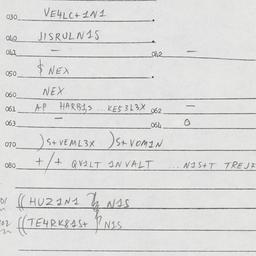 030 VE4LC+1N1 .
040 JISRULN1S
041 – 042 –
050 $ NEX
060 NEX
061 AP HARB1S ..KE53L3X 062 –
063 – 064 0
070 )S+VEML3X )S+VOM1N
080 +/+ QV1LT 1NVALT ...N1S+T TREJF
01 ((HUZ1N1 } N1S
02 ((TE4RK81S+ } N1S